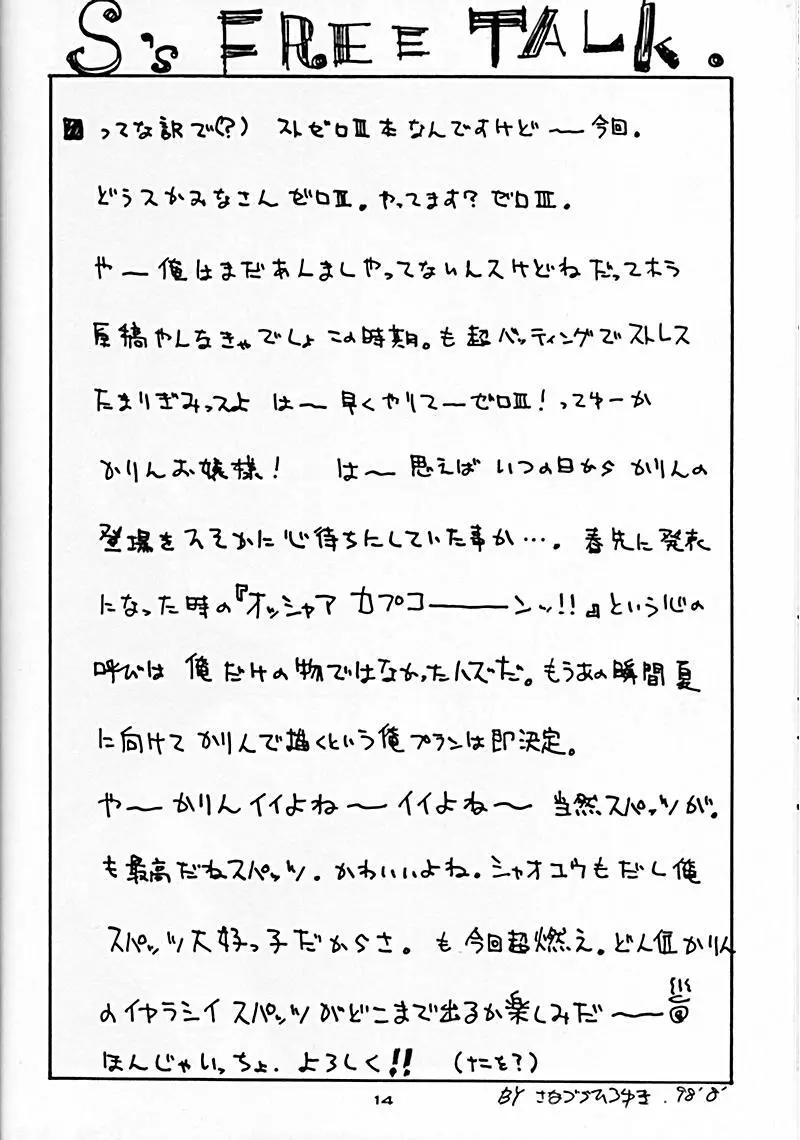 S's FREE TALK.
ってな訳で(?) ストゼロⅢ本なんですけど〜今回。
どうスかみなさんゼロⅢ。やってます?ゼロⅢ。
や〜俺はまだあんましやってないんスけどねだってホラ
原稿やんなきゃでしょこの時期。も超バッティングでストレス
たまりぎみっスよ は〜早くやりてーゼロⅢ!ってゆーか
かりんお嬢様! は〜思えばいつの日からかりんの
登場をヘそかに心待ちにしていた事か…。春先に発表
になった時の『オッシャア カプコ———ンッ!!』という心の
呼びは俺だけの物ではなかったハズだ。もうあの瞬間夏
に向けてかりんで描くという俺プランは即決定。
や〜かりんイイよね〜イイよね〜 当然スパッツが。
も最高だねスパッツ。かわいいよね。シャオユウもだし俺
スパッツ大好っ子だからさ。も今回超燃え。どん位かりん
のイヤラシイスパッツがどこまで出るか楽しみだ〜
ほんじゃいっちょ.よろしく!! (ナニを?)
14
BY さなづらひろゆき.'98'8'